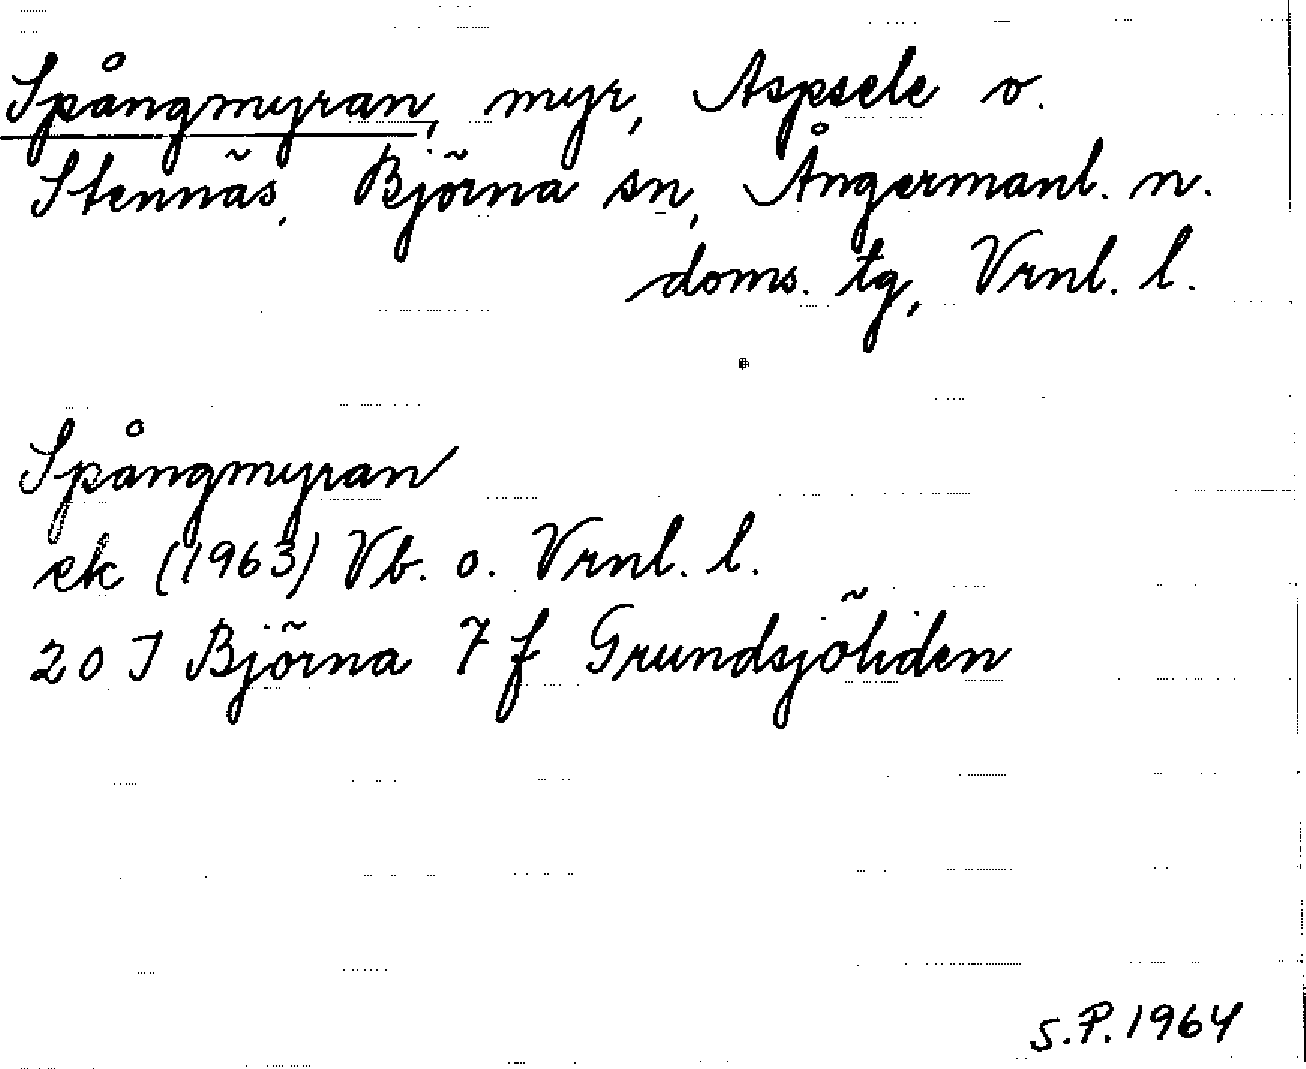 Spångmyran, myr, Aspsele o.
Stennäs, Björna sn, Ångermanl. n.
doms. tg, Vrnl. l.
Spångmyran
ek (1963) Vb. o. Vrnl. l.
20 I Björna 7 f Grundsjöliden
S.P. 1964